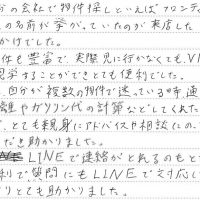 分の会社で物件探しといえばフロンティ
の名前が挙がっていたのが来店した
かけでした。
件も豊富で、実際見に行かなくても、V
見学することができとても便利でした。
自分が複数の物件で迷っている時通
離やガソリン代の計算などしてくれた
、とても親身にアドバイスや相談にの
だき助かりました。
LINEで連絡がとれるのもと
利で質問にもLINEで対応い
りとても助かりました。